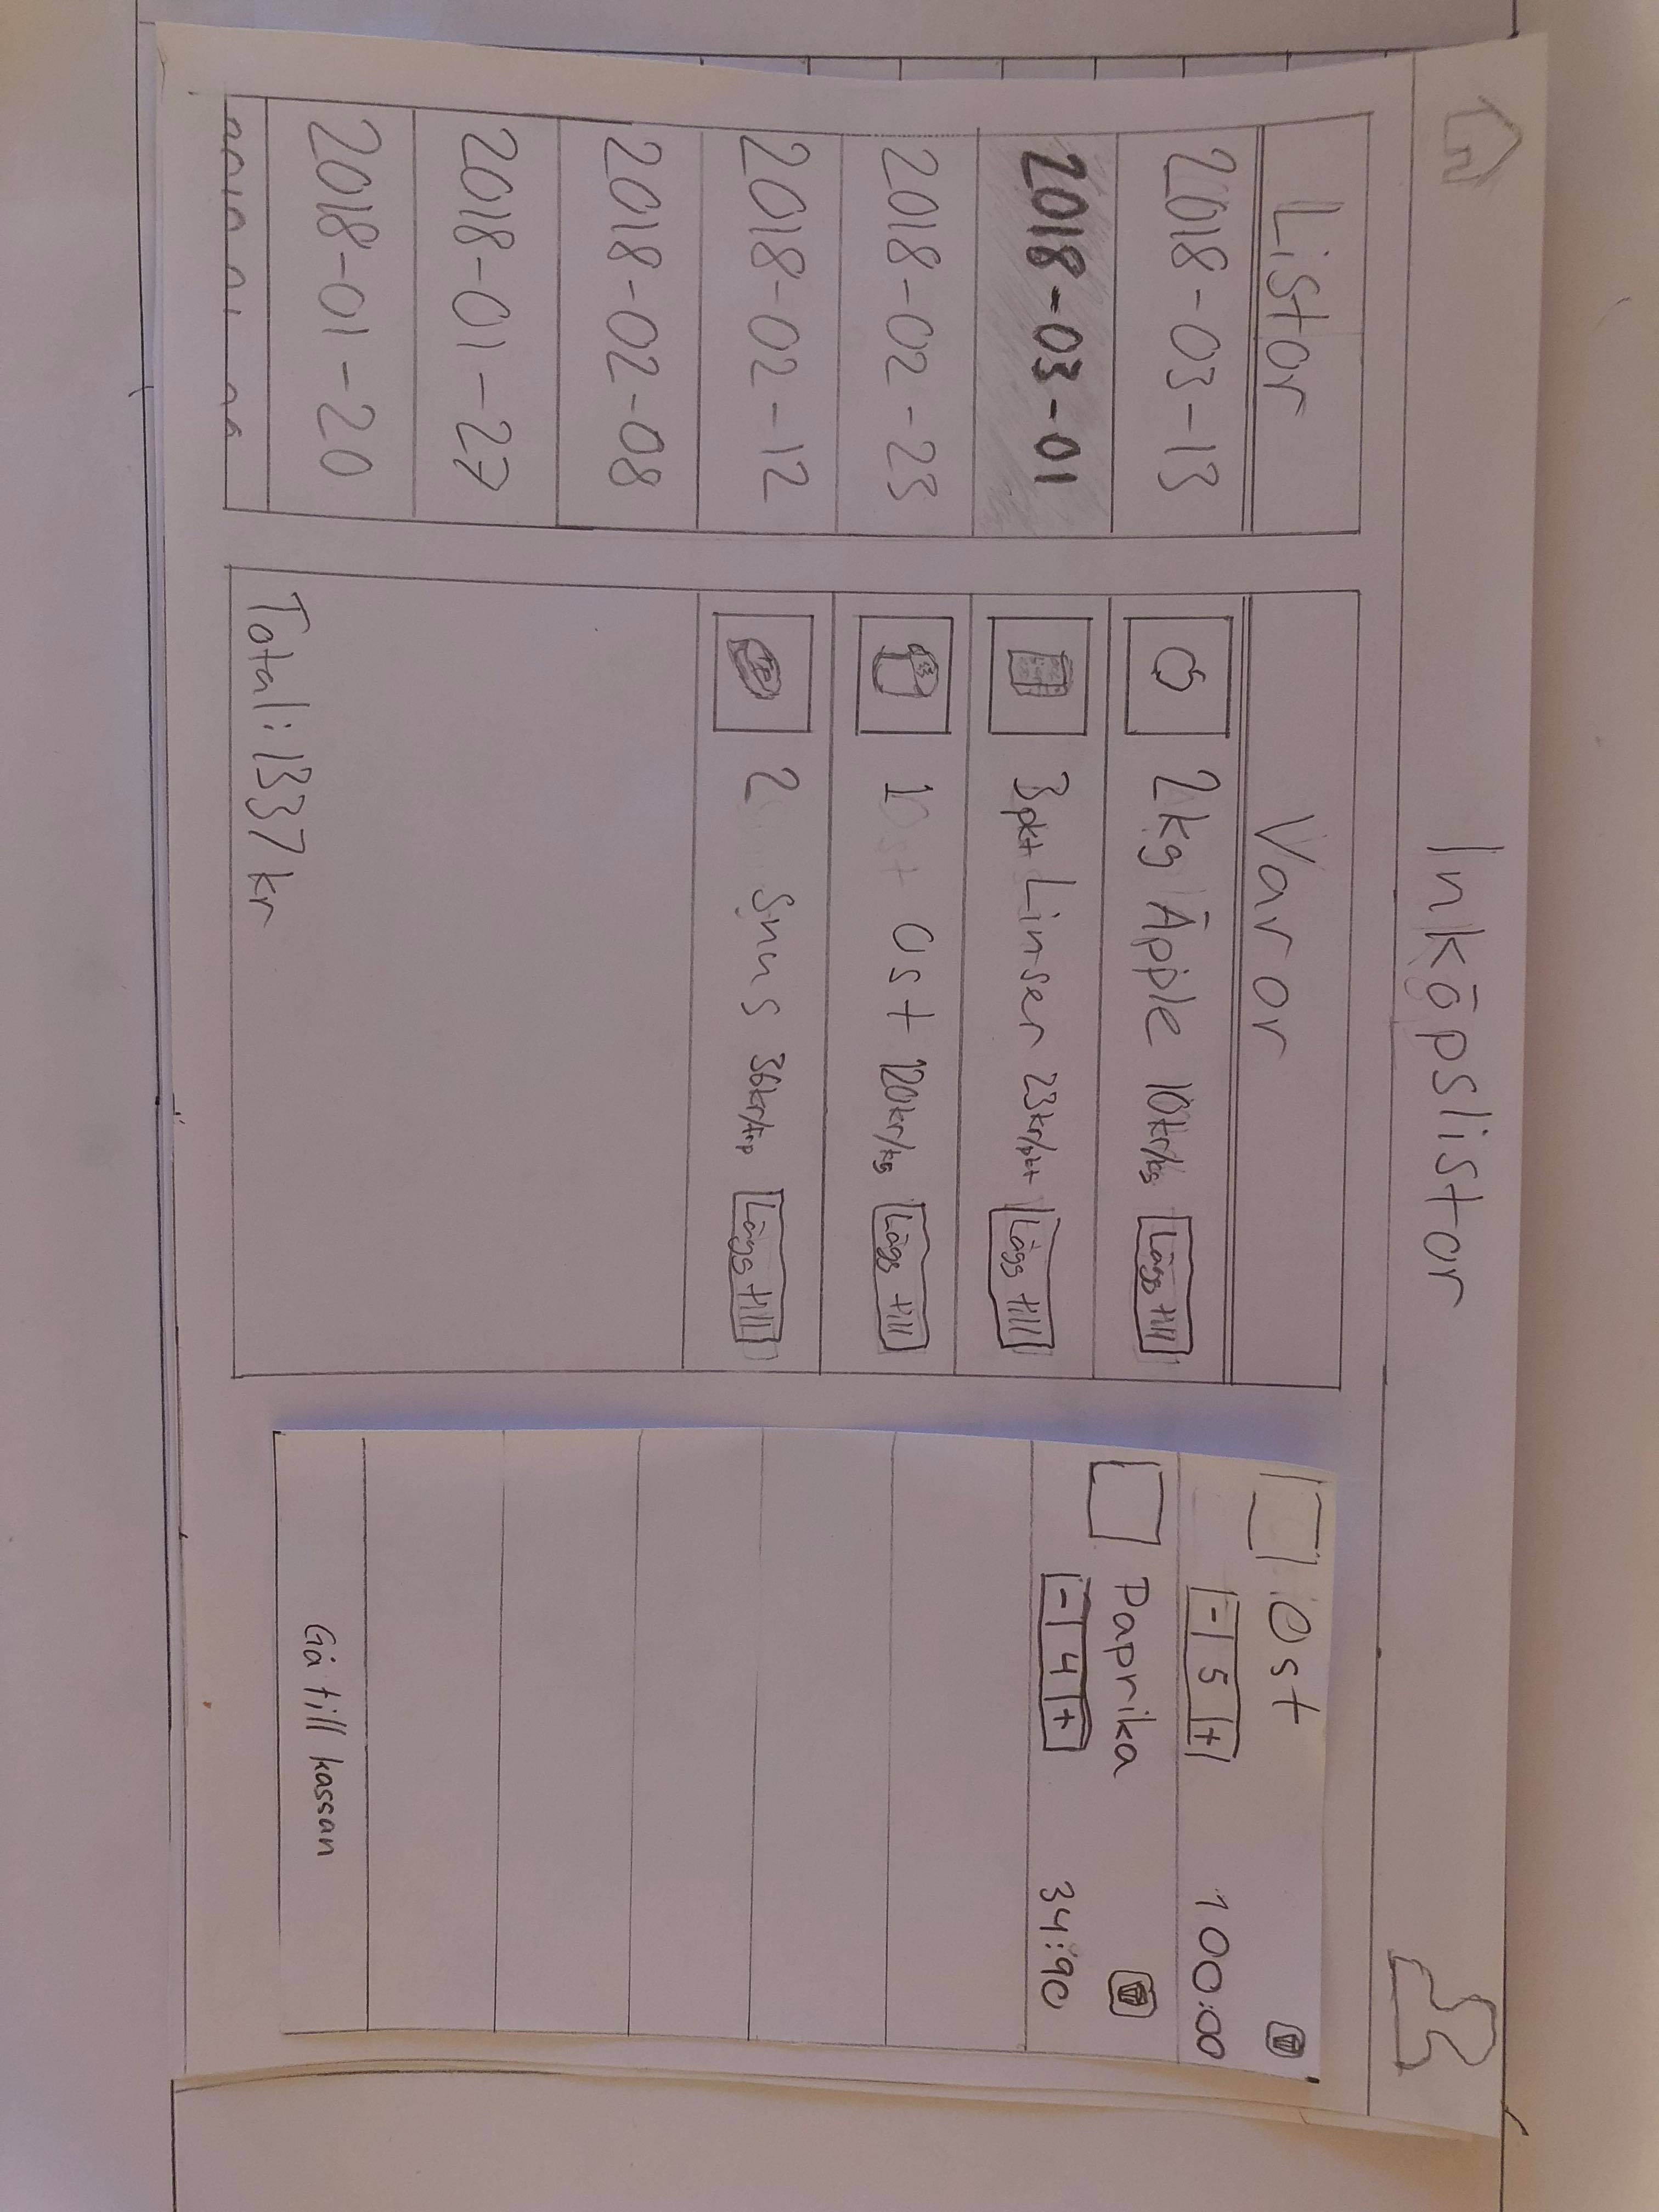 Inköpslistor
Listor
2018-03-13
2018-03-01
2018-02-23
2018-02-12
2018-02-08
2018-01-27
2018-01-20
Varor
2kg Äpple 10kr/kg Lägg till
3pkt Linser 23kr/pkt Lägg till
1 Ost 120kr/kg Lägg till
2 Snus 36kr/frp Lägg till
Total: 1337 kr
Ost
- 5 + 100:00
Paprika
- 4 + 34:90
Gå till kassan